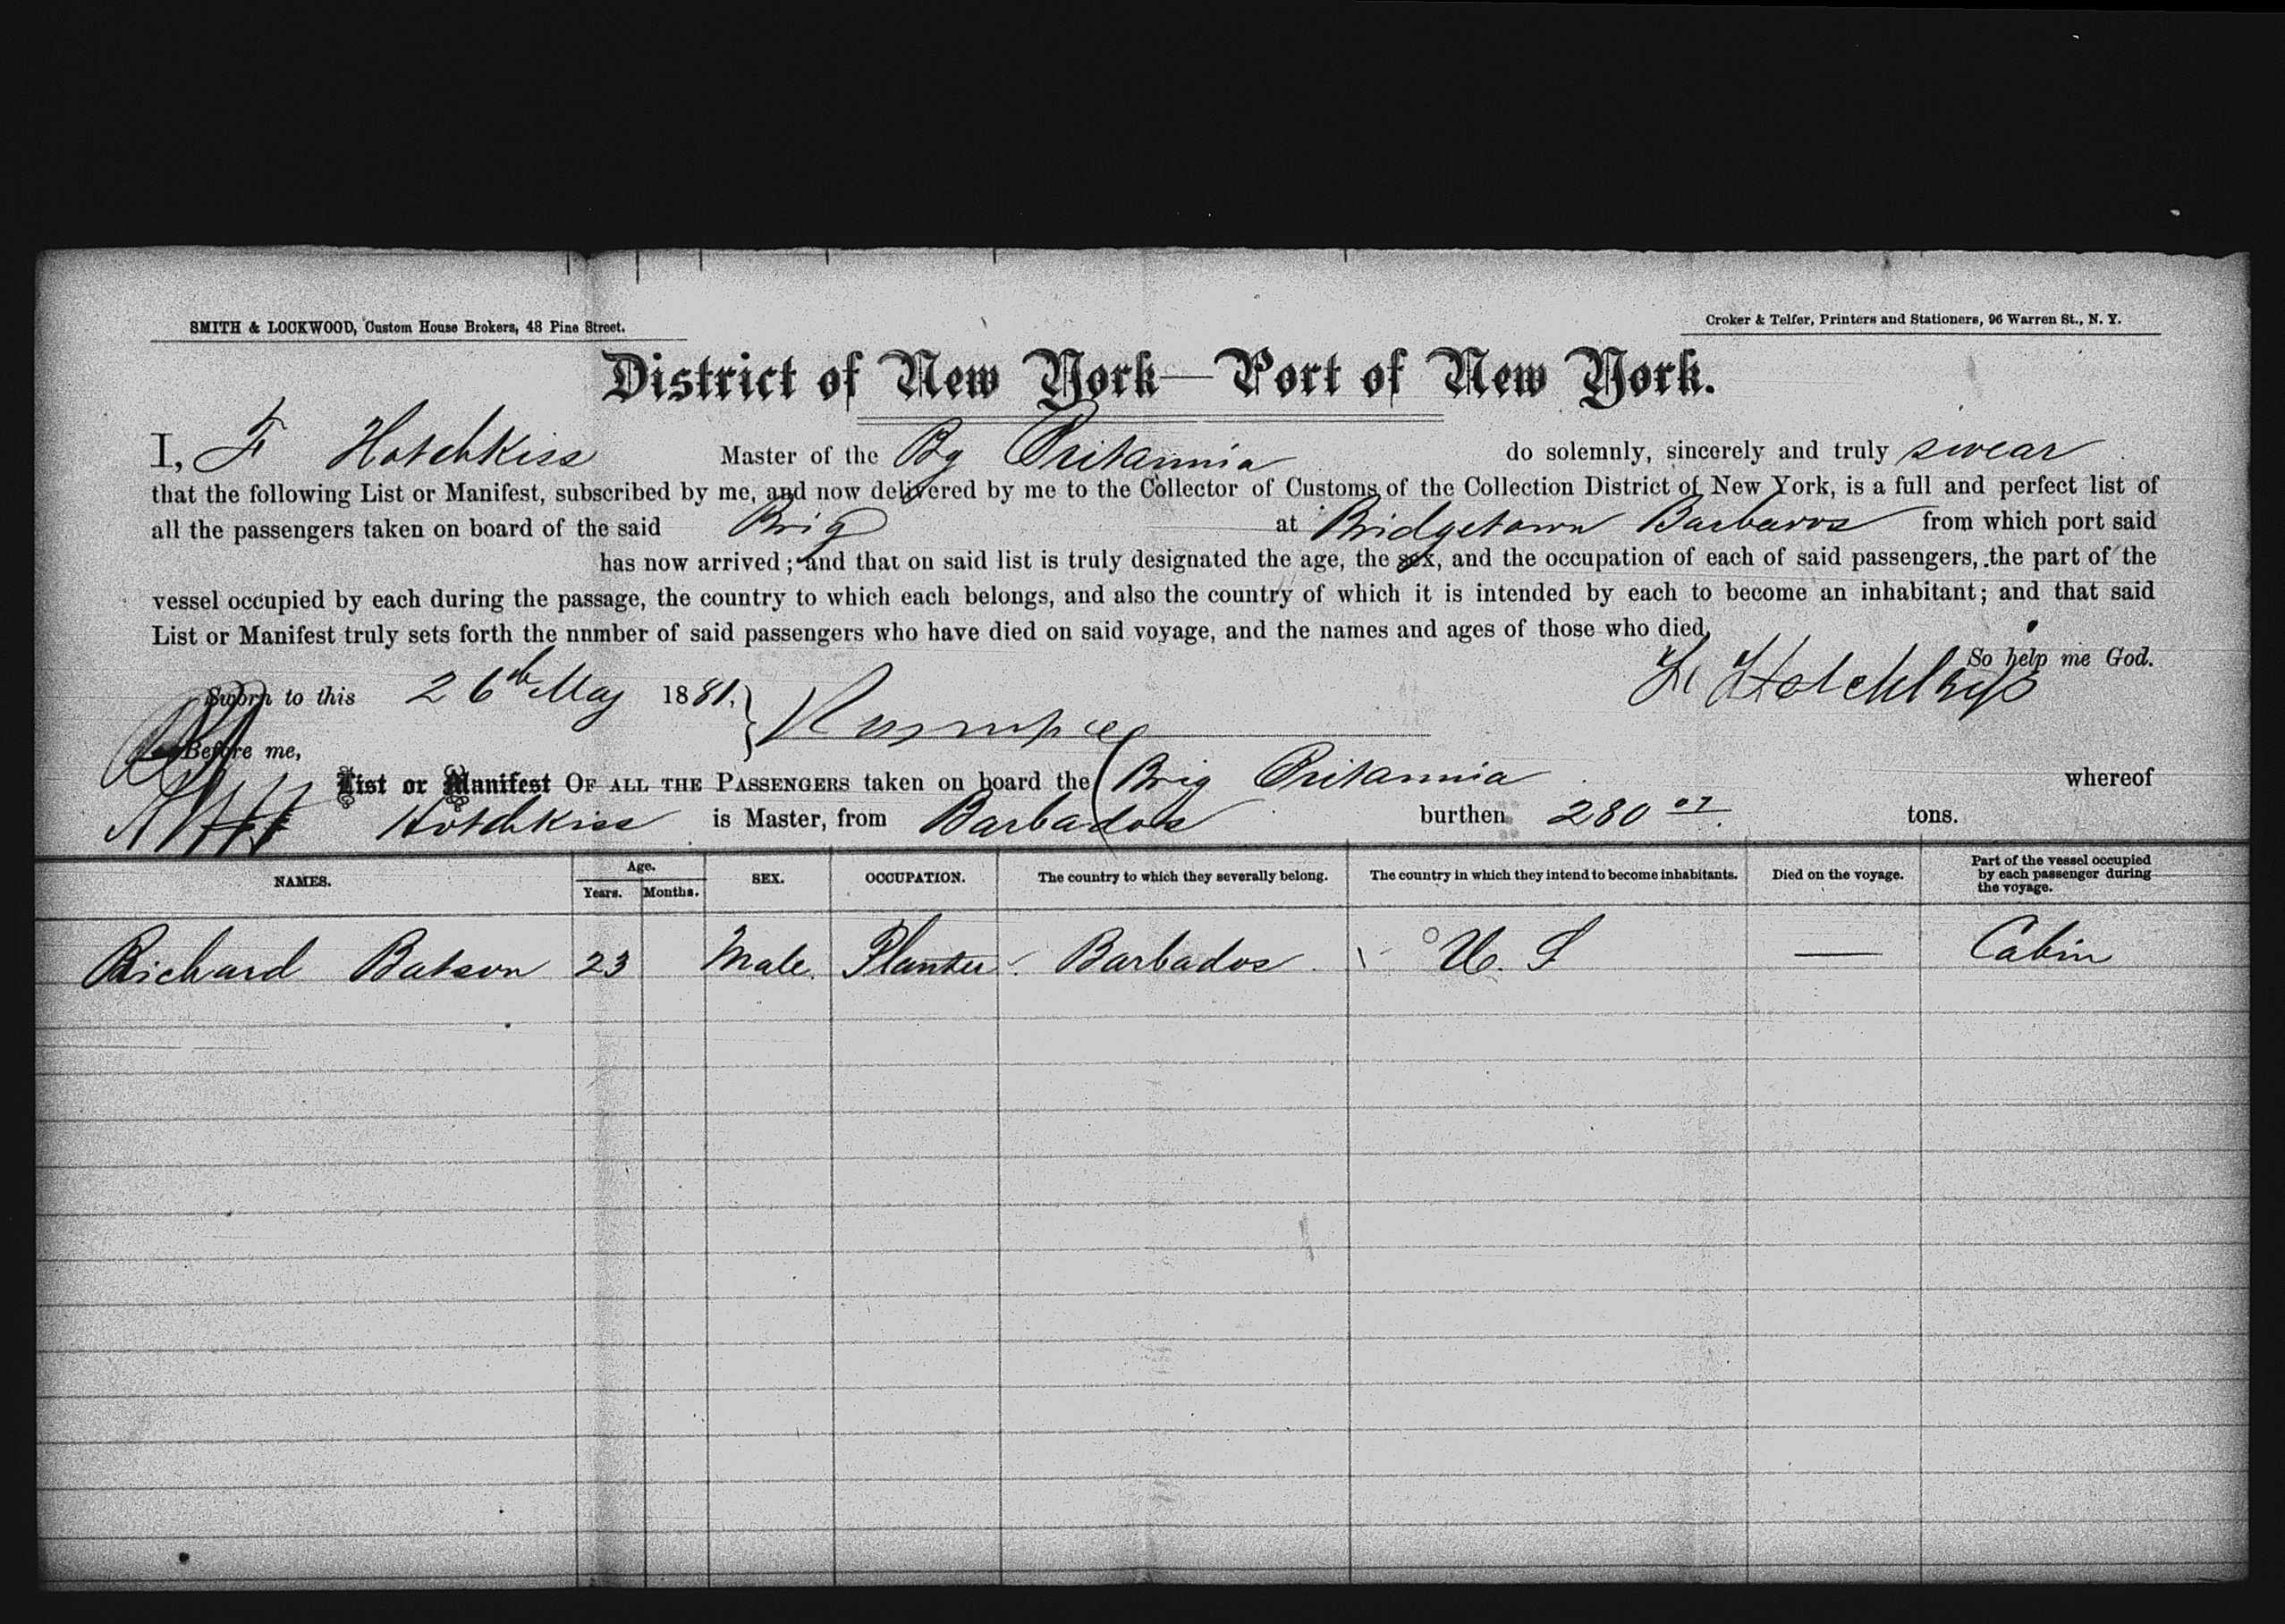 SMITH & LOCKWOOD, Custom House Brokers, 48 Pine Street.
Croker & Telfer, Printers and Stationers, 96 Warren St., N. Y.
District of New York—Port of New York.
I, F Hotchkiss Master of the Bg Britannia do solemnly, sincerely and truly swear
that the following List or Manifest, subscribed by me, and now delivered by me to the Collector of Customs of the Collection District of New York, is a full and perfect list of
all the passengers taken on board of the said Brig at Bridgetown Barbaros from which port said
has now arrived; and that on said list is truly designated the age, the sex, and the occupation of each of said passengers, the part of the
vessel occupied by each during the passage, the country to which each belongs, and also the country of which it is intended by each to become an inhabitant; and that said
List or Manifest truly sets forth the nnmber of said passengers who have died on said voyage, and the names and ages of those who died.
So help me God.
Sworn to this 26th May 1881. F Hotchkiss
Before me,
List or Manifest OF ALL THE PASSENGERS taken on board the Brig Britannia whereof
Hotchkiss is Master, from Barbados burthen 280 07 tons.
NAMES. Age. Years. Months. SEX. OCCUPATION. The country to which they severally belong. The country in which they intend to become inhabitants. Died on the voyage. Part of the vessel occupied by each passenger during the voyage.
Richard Batson 23 Male. Planter. Barbados U. S — Cabin